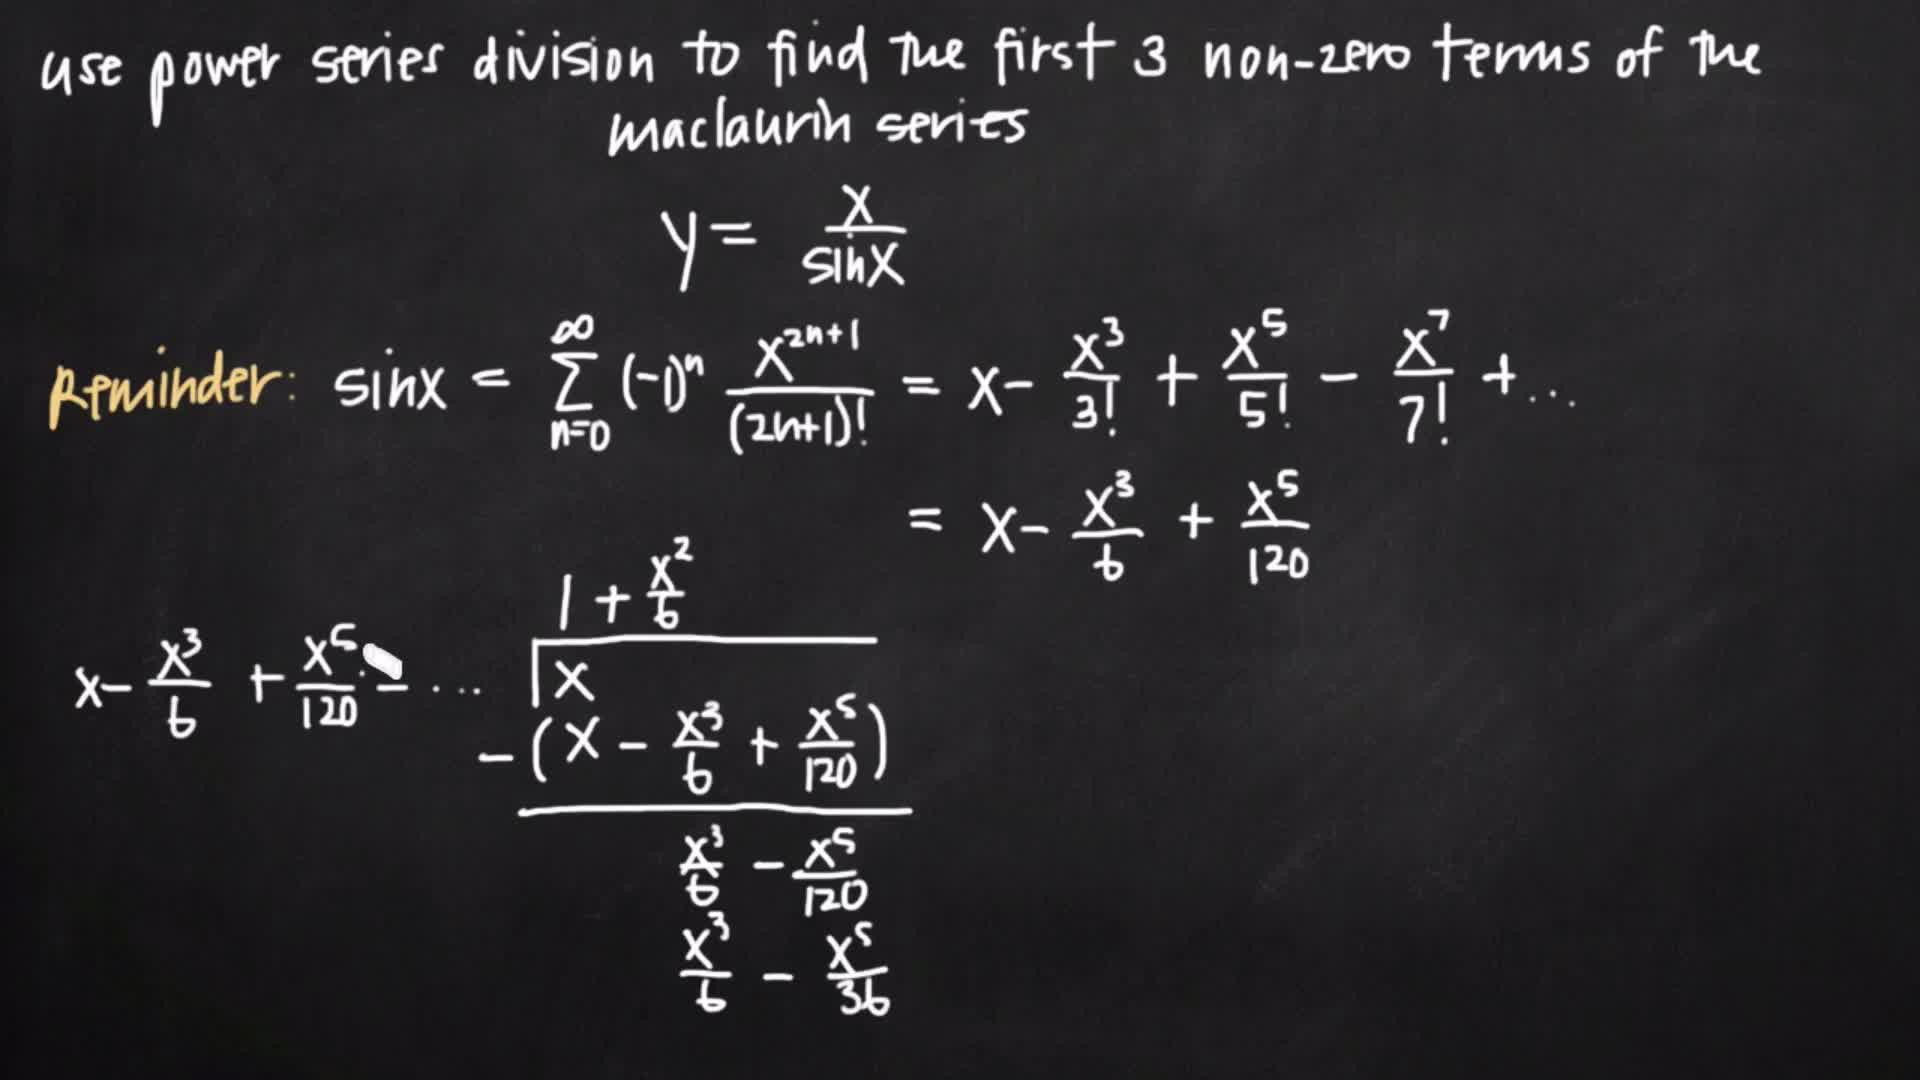 use power series division to find the first 3 non-zero terms of the
maclaurin series
y = x/sinx
Reminder: sinx = ∞∑n=0 (-1)^n x^(2n+1)/(2n+1)! = x - x^3/3! + x^5/5! - x^7/7! + ...
= x - x^3/6 + x^5/120
1 + x^2/6
x - x^3/6 + x^5/120 - ... x
-(x - x^3/6 + x^5/120)
x^3/6 - x^5/120
x^3/6 - x^5/36